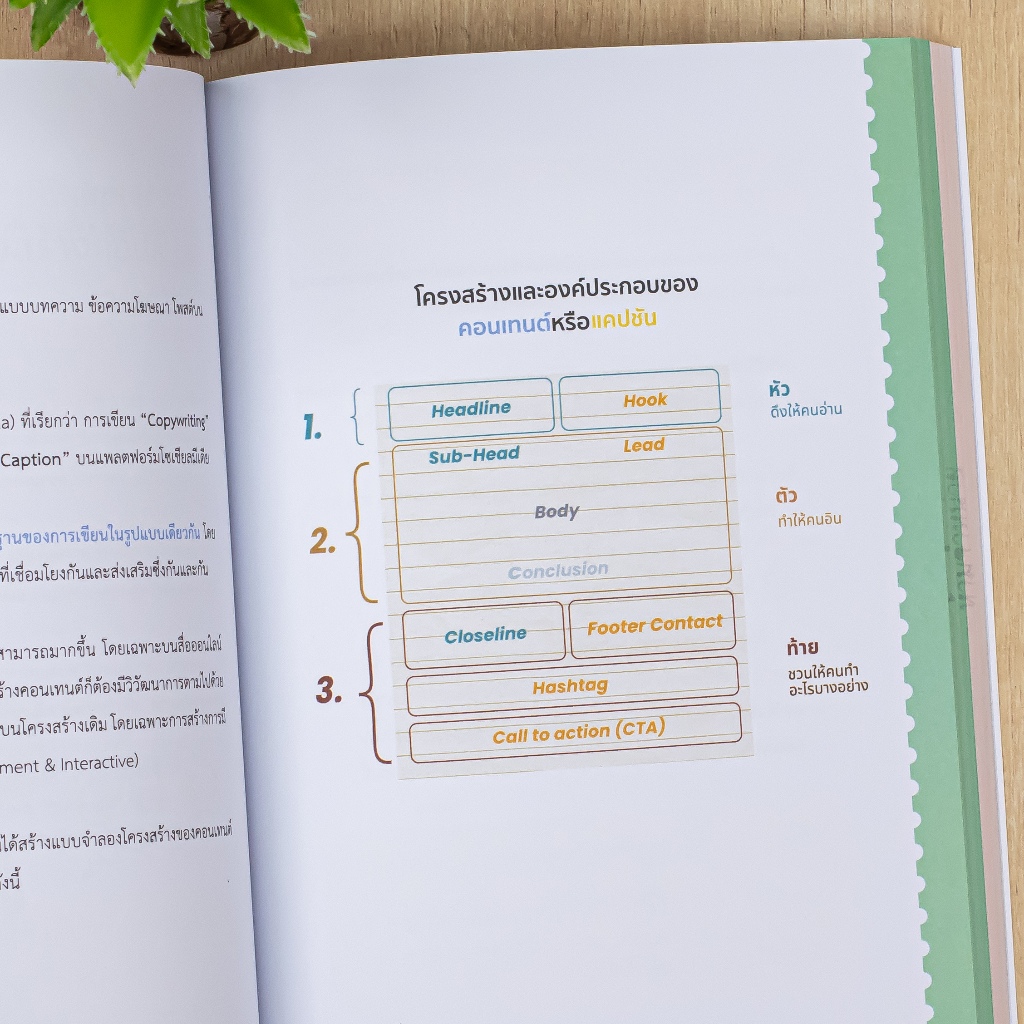 แบบบทความ ข้อความโฆษณา โพสต์บน
ที่เรียกว่า การเขียน “Copywriting”
Caption” บนแพลตฟอร์มโซเชียลมีเดีย
ฐานของการเขียนในรูปแบบเดียวกัน โดย
ที่เชื่อมโยงกันและส่งเสริมซึ่งกันและกัน
สามารถมากขึ้น โดยเฉพาะบนสื่อออนไลน์
ร้างคอนเทนต์ก็ต้องมีวิวัฒนาการตามไปด้วย
บนโครงสร้างเดิม โดยเฉพาะการสร้างการมี
ment & Interactive)
ได้สร้างแบบจำลองโครงสร้างของคอนเทนต์
ังนี้
โครงสร้างและองค์ประกอบของ
คอนเทนต์หรือแคปชัน
1.
Headline
Hook
หัว
ดึงให้คนอ่าน
2.
Sub-Head
Lead
Body
Conclusion
ตัว
ทำให้คนอิน
3.
Closeline
Footer Contact
Hashtag
Call to action (CTA)
ท้าย
ชวนให้คนทำ
อะไรบางอย่าง